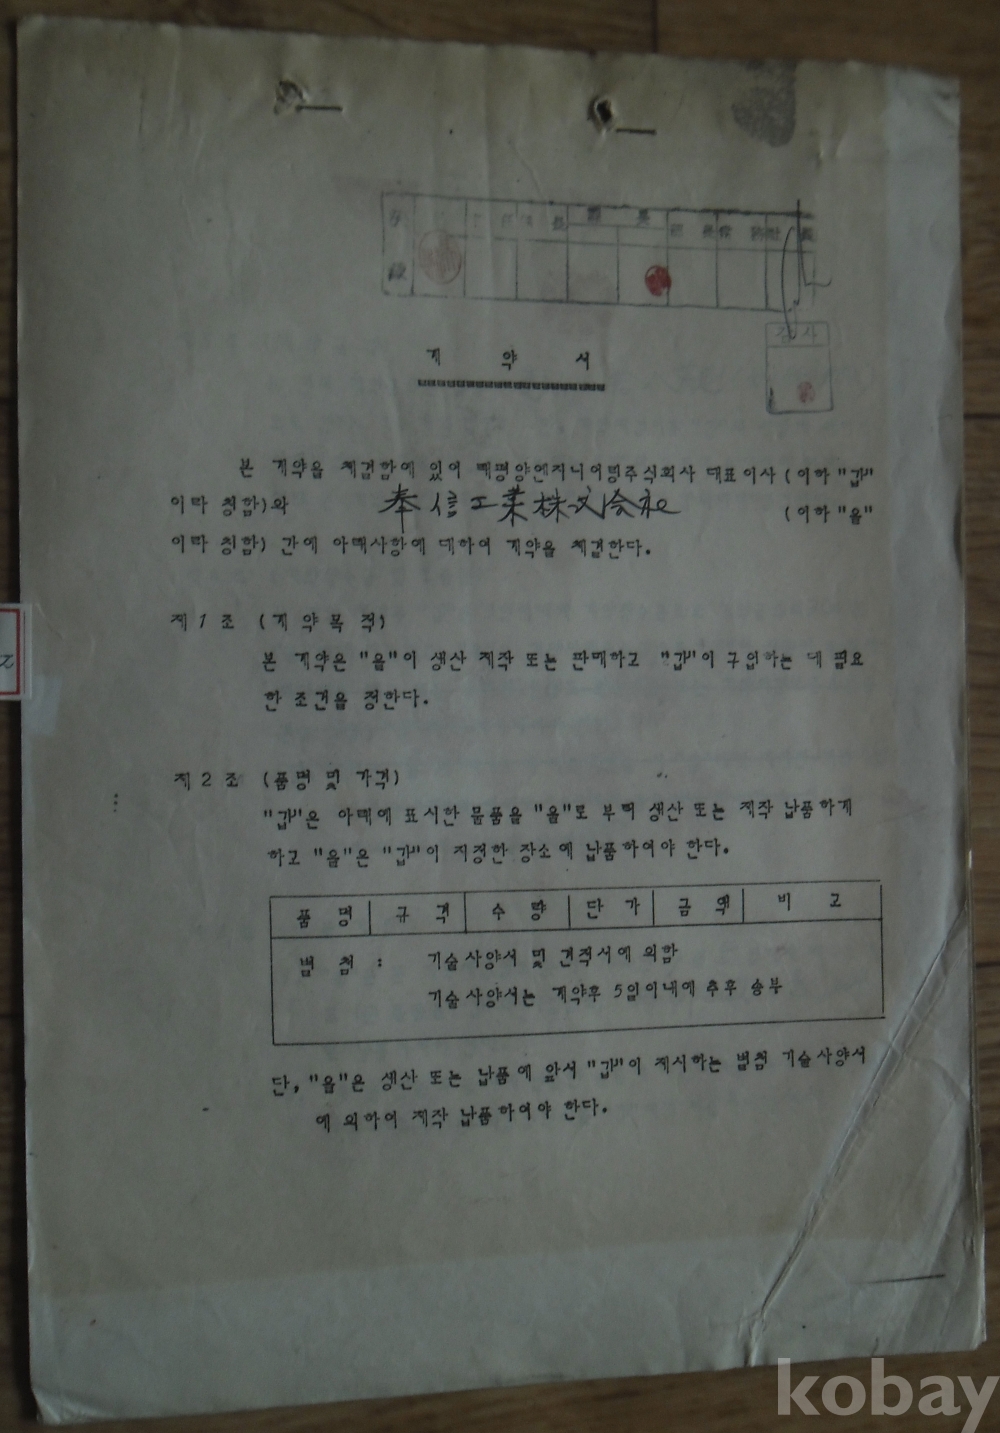 계 약 서
본 계약을 체결함에 있어 태평양엔지니어링주식회사 대표이사 (이하 "갑"
이라 칭함)와 奉信工業株式会社 (이하 "을"
이라 칭함) 간에 아래사항에 대하여 계약을 체결한다.
제 1 조 (계 약 목 적)
본 계약은 "을"이 생산 제작 또는 판매하고 "갑"이 구입하는 데 필요
한 조건을 정한다.
제 2 조 (품명 및 가격)
"갑"은 아래에 표시한 물품을 "을"로 부터 생산 또는 제작 납품하게
하고 "을"은 "갑"이 지정한 장소에 납품하여야 한다.
품 명 규 격 수 량 단 가 금 액 비 고
별 첨 : 기술사양서 및 견적서에 의함
기술사양서는 계약후 5일이내에 추후 송부
단, "을"은 생산 또는 납품에 앞서 "갑"이 제시하는 별첨 기술사양서
에 의하여 제작 납품하여야 한다.
kobay